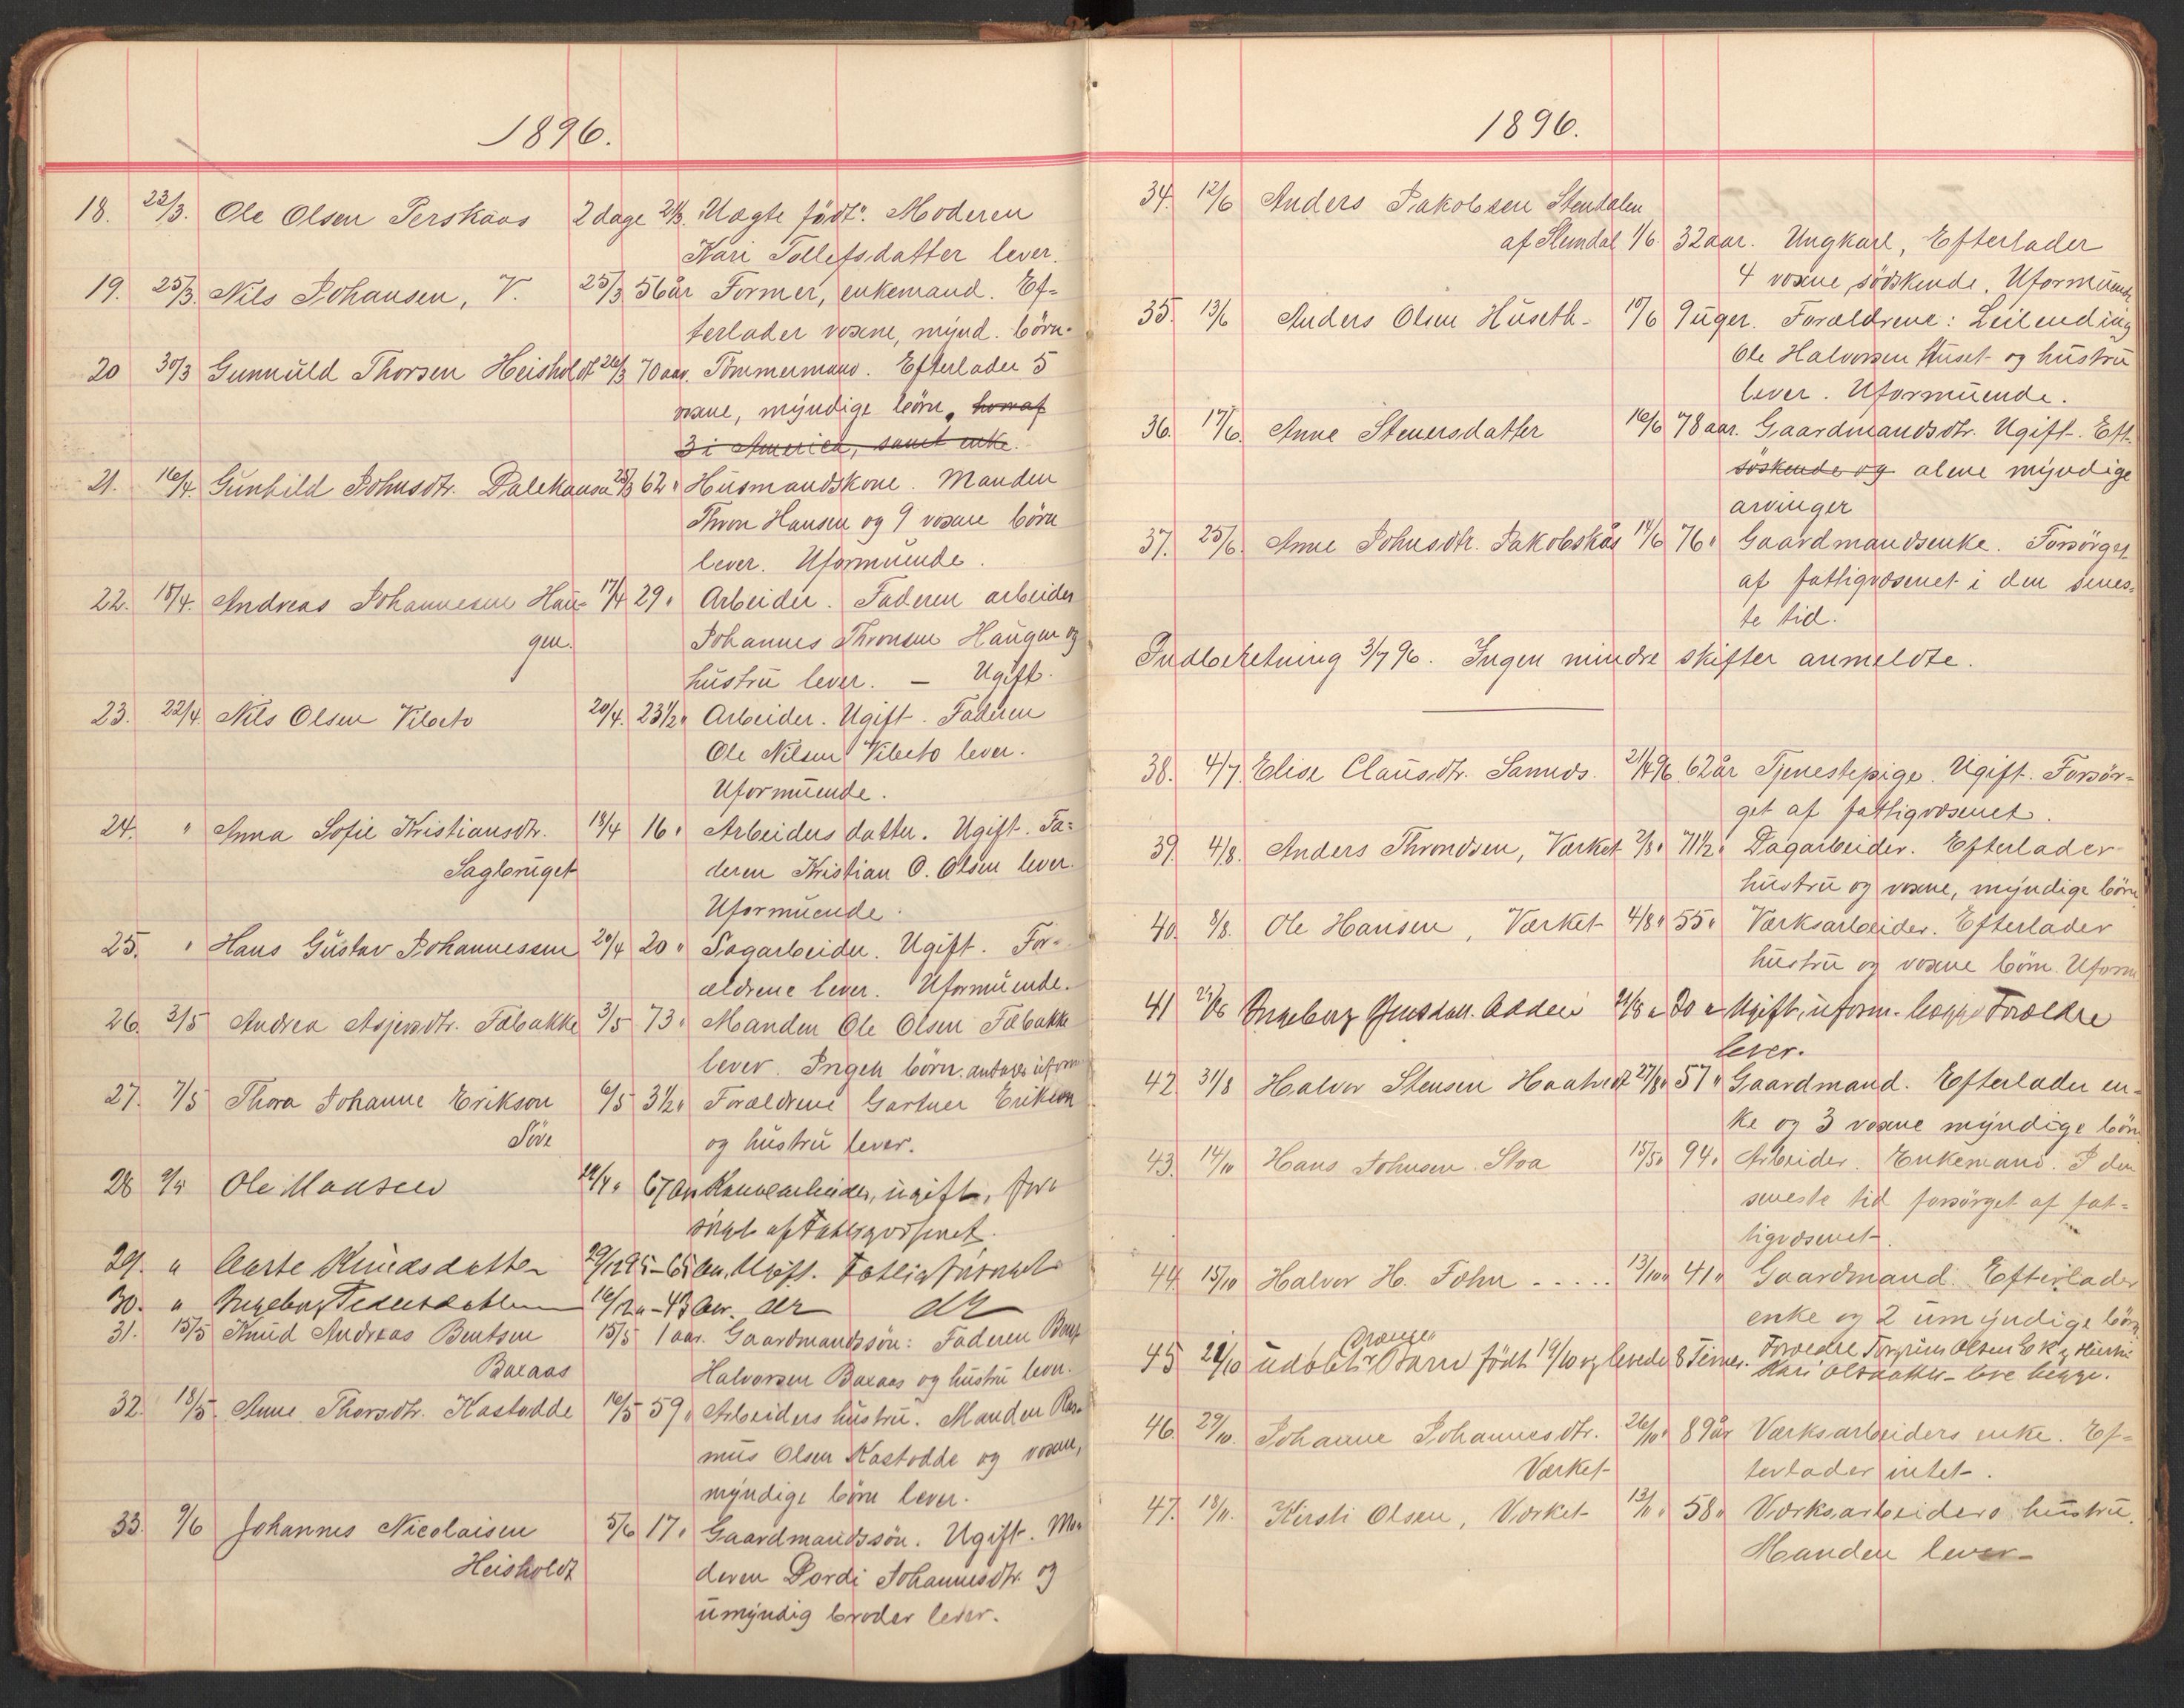 1896.
18. 23/3. Ole Olsen Perskaas 2 dage 21/3. Uægte født. Moderen
Kari Tollefsdatter lever.
19. 25/3. Nils Johansen, V. 25/3 56 år Former, enkemand. Ef-
terlader voxne, mynd. börn.
20 30/3 Gunnuld Thorsen Heisholdt 26/3 70 aar. Tömmermand. Efterlader 5
voxne, myndige börn, hvoraf
3 i America, samt enke.
21. 16/4. Gunhild Johnsdtr. Dalekaasa 28/3 62 " Husmandskone. Manden
Thron Hansen og 9 voxne börn
lever. Uformuende.
22. 18/4. Andreas Johannesen Hau- 17/4 29 " Arbeider. Faderen arbeider
gen. Johannes Thronsen Haugen og
hustru lever. — Ugift.
23. 22/4. Nils Olsen Vibeto 20/4. 23 1/2 " Arbeider. Ugift. Faderen
Ole Nilsen Vibeto lever.
Uformuende.
24. " Anna Sofie Kristiansdtr. 18/4 16 " Arbeiders datter. Ugift. Fa-
Sagbruget deren Kristian O. Olsen lever.
Uformuende.
25. " Hans Gustav Johannessen 20/4 20 " Sagarbeider. Ugift. For-
ældrene lever. Uformuende.
26. 3/5 Andrea Asjersdtr. Fæbakke 3/5 73 " Manden Ole Olsen Fæbakke
lever. Ingen börn. antages uform
27. 7/5 Thora Johanne Erikson 6/5 3 1/2 " Forældrene Gartner Erikson
Söve og hustru lever.
28 9/5 Ole Hansen 24/4 " 67 Aar ugift, for-
sörget af Fattigvæsenet.
29. " Aaste Knudsdatter 29/12 95 - 65 Aar, Ugift. Fattigforsørget
30. " Ingeborg Pedersdatter 16/12 " - 43 Aar. do do
31. 15/5 Knud Andreas Bentsen 15/5 1 aar. Gaardmandssön: Faderen Bent
Baxaas Halvorsen Baxaas og hustru lever.
32. 18/5. Anne Thorsdtr. Kastodde 16/5 59 " Arbeiders hustru. Manden Ras-
mus Olsen Kastodde og voxne,
myndige börn lever.
33. 9/6 Johannes Nicolaisen 5/6 17 " Gaardmandssön. Ugift. Mo-
Heisholdt deren Dordi Johannesdtr. og
umyndig broder lever.
1896.
34. 12/6 Anders Jakobsen Stendalen
af Slemdal 1/6. 32 aar. Ungkarl, Efterlader
4 voxne södskende. Uformuende
35. 13/6 Anders Olsen Huseth - 10/6 9 uger. Forældrene: Leilending
Ole Halvorsen Huset og hustru
lever. Uformuende.
36. 17/6. Anne Steuersdatter 16/6 78 aar. Gaardmandsdtr. Ugift. Eft.
söskende og alene myndige
arvinger
37. 25/6. Anne Johnsdtr. Jakobskås 14/6 76 " Gaardmandsenke. Forsörget
af fattigvæsenet i den senes-
te tid.
Indberetning 3/7 96. Ingen mindre skifter anmeldte.
38. 4/7. Elise Clausdtr. Sannes. 21/4 96. 62 år Tjenestepige. Ugift. Forsör-
get af fattigvæsenet.
39. 4/8. Anders Throndsen, Værket 2/8 " 71 1/2 " Dagarbeider. Efterlader
hustru og voxne, myndige börn
40. 8/8. Ole Hansen, Værket 4/8 " 55 " Værksarbeider. Efterlader
hustru og voxne börn. Uform
41 Ingeborg Jensdatt. Odden 21/8 " 20 " Ugift, uform. begge Forældre
lever.
42. 31/8 Halvor Stensen Haatvedt 27/8 " 57 " Gaardmand. Efterlader en-
ke og 3 voxne myndige börn
43. 14/10 Hans Johnsen Stoa 15/5 " 94 " Arbeider. Enkemand. I den
seneste tid forsörget af fat-
tigvæsenet.
44. 15/10 Halvor H. Fæhn ..... 13/10 " 41 " Gaardmand. Efterlader
enke og 2 umyndige börn.
45 21/10 udöbt Drenge Barn födt 19/10 og levede 8 Timer. Forældre Torgrim Olsen Eik og Hustru
Kari Olsdatter - leve begge.
46. 29/10. Johanne Johannesdtr. 26/10 " 89 år Værksarbeiders enke. Ef-
Værket terlader intet.
47. 18/11. Kirsti Olsen, Værket 13/11 " 58 " Værksarbeiders hustru.
Manden lever